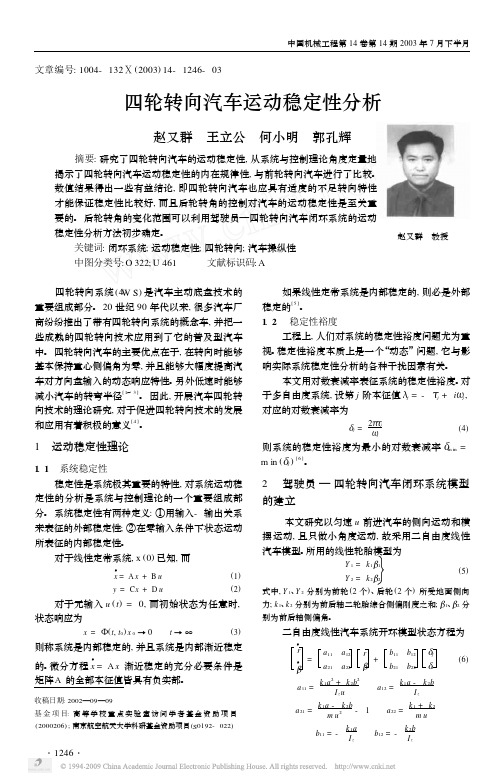 中国机械工程第 14 卷第 14 期 2003 年 7 月下半月
文章编号: 1004- 132Ⅹ (2003) 14- 1246- 03
四轮转向汽车运动稳定性分析
赵又群 王立公 何小明 郭孔辉
摘要: 研究了四轮转向汽车的运动稳定性, 从系统与控制理论角度定量地
揭示了四轮转向汽车运动稳定性的内在规律性, 与前轮转向汽车进行了比较。
数值结果得出一些有益结论, 即四轮转向汽车也应具有适度的不足转向特性
才能保证稳定性比较好, 而且后轮转角的控制对汽车的运动稳定性是至关重
要的。 后轮转角的变化范围可以利用驾驶员—四轮转向汽车闭环系统的运动
稳定性分析方法初步确定。
关键词: 闭环系统; 运动稳定性; 四轮转向; 汽车操纵性
中图分类号: O 322; U 461 文献标识码: A
赵又群 教授
四轮转向系统 (4W S) 是汽车主动底盘技术的
重要组成部分。 20 世纪 90 年代以来, 很多汽车厂
商纷纷推出了带有四轮转向系统的概念车, 并把一
些成熟的四轮转向技术应用到了它的普及型汽车
中。 四轮转向汽车的主要优点在于, 在转向时能够
基本保持重心侧偏角为零, 并且能够大幅度提高汽
车对方向盘输入的动态响应特性。另外低速时能够
减小汽车的转弯半径。 因此, 开展汽车四轮转
向技术的理论研究, 对于促进四轮转向技术的发展
和应用有着积极的意义 [4]。
1 运动稳定性理论
1. 1 系统稳定性
稳定性是系统极其重要的特性, 对系统运动稳
定性的分析是系统与控制理论的一个重要组成部
分。 系统稳定性有两种定义: ①用输入- 输出关系
来表征的外部稳定性, ②在零输入条件下状态运动
所表征的内部稳定性。
对于线性定常系统, x (0) 已知, 而
ẋ = A x + B u (1)
y = Cx + D u (2)
对于无输入 u ( t) = 0, 而初始状态为任意时,
状态响应为
x = Φ( t, t₀) x₀ → 0 t → ∞ (3)
则称系统是内部稳定的, 并且系统是内部渐近稳定
的。微分方程 ẋ = A x 渐近稳定的充分必要条件是
矩阵A 的全部本征值皆具有负实部。
收稿日期: 2002—09—09
基 金 项 目: 高 等 学 校 重 点 实 验 室 访 问 学 者 基 金 资 助 项 目
(2000206) ; 南京航空航天大学科研基金资助项目(g0192- 022)
如果线性定常系统是内部稳定的, 则必是外部
稳定的 [5]。
1. 2 稳定性裕度
工程上, 人们对系统的稳定性裕度问题尤为重
视。稳定性裕度本质上是一个“动态”问题, 它与影
响实际系统稳定性分析的各种干扰因素有关。
本文用对数衰减率表征系统的稳定性裕度。对
于多自由度系统, 设第 j 阶本征值
对应的对数衰减率为
(4)
则系统的稳定性裕度为最小的对数衰减率
[6]。
2 驾驶员 — 四轮转向汽车闭环系统模型
的建立
本文研究以匀速 u 前进汽车的侧向运动和横
摆运动, 且只做小角度运动, 故采用二自由度线性
汽车模型。所用的线性轮胎模型为
Y₁ = k₁β₁
Y₂ = k₂β₂ (5)
式中, Y₁、Y₂ 分别为前轮 (2 个)、后轮 (2 个) 所受地面侧向
力; k₁、k₂ 分别为前后轴二轮胎综合侧偏刚度之和; β₁、β₂ 分
别为前后轴侧偏角。
二自由度线性汽车系统开环模型状态方程为
(6)
· 1246 ·
© 1994-2009 China Academic Journal Electronic Publishing House. All rights reserved. http://www.cnki.net